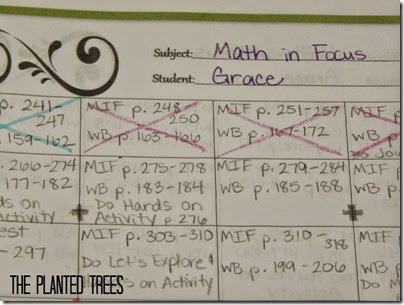 Subject: Math in Focus
Student: Grace
p. 241-
247
159-162
MIF p. 248-
250
WB p. 163-166
MIF p. 251-257
WB p. 167-172
MIF p.
WB p.
266-274
177-182
ds on
Activity
MIF p. 275-278
WB p. 183-184
Do Hands on
Activity p. 276
MIF p. 279-284
WB p. 185-188
MIF
WB p.
est
-297
MIF p. 303-310
Do Let's Explore &
Hands on Activity
MIF p. 310-
318
WB p. 199-206
MIF p.
WB p.
Do
THE PLANTED TREES